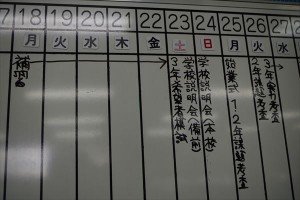 18 19 20 21 22 23 24 25 26 27
月 火 水 木 金 土 日 月 火 水
補習
3年希望者模試
学校説明会(備前)
学校説明会(本校)
始業式
1、2年課題考査
2年課題考査
3年実力考査